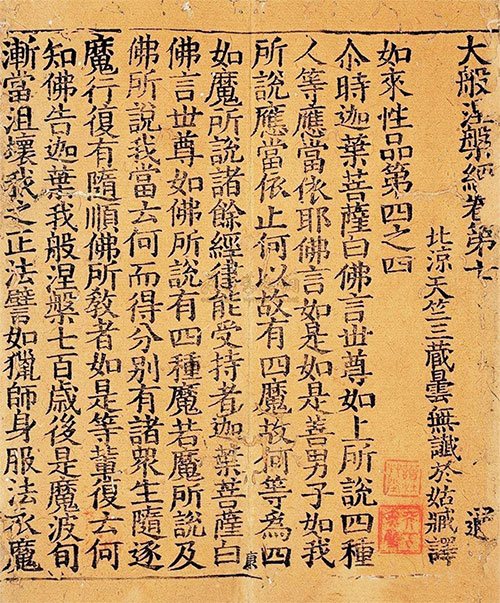 大般涅槃經卷第七
北涼天竺三藏曇無讖於姑臧譯
如來性品第四之四
尒時迦葉菩薩白佛言世尊如上所說四種
人等應當依耶佛言如是如是善男子如我
所說應當依止何以故有四魔故何等為四
如魔所說諸餘經律能受持者迦葉菩薩白
康
佛言世尊如佛所說有四種魔若魔所說及
佛所說我當云何而得分別有諸眾生隨逐
魔行復有隨順佛所教者如是等輩復云何
知佛告迦葉我般涅槃七百歲後是魔波旬
漸當沮壞我之正法譬如獵師身服法衣魔